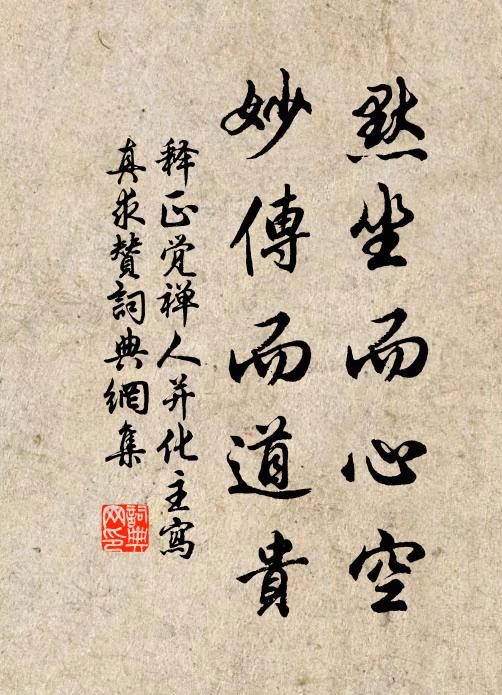 默坐而心空
妙傳而道貴
释正觉禅人并化主寫
真求赞詞典網集
詞典網印